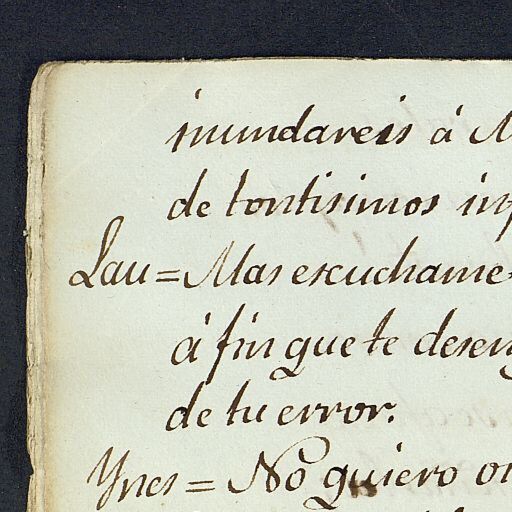 inundareis á M
de tontisimos inf
Lau = Mas escuchame
á fin que te deseng
de tu error.
Ynes = No quiero oi